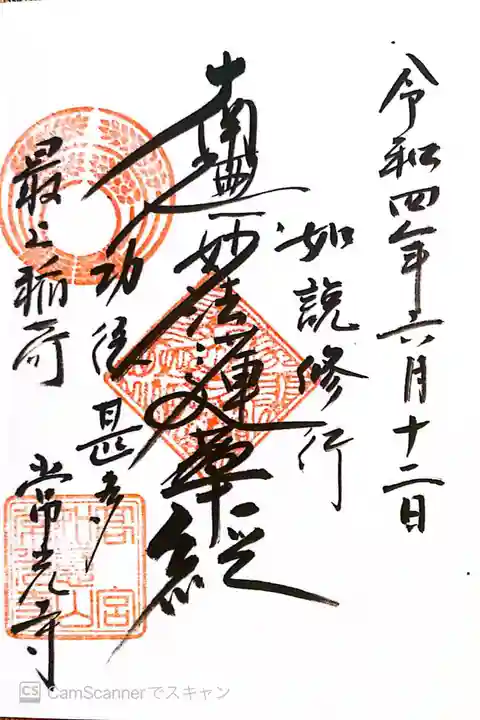 令和四年六月十二日
如説修行
南無妙法蓮華経
功徳甚多
最上稲荷 常光寺
CS CamScannerでスキャン